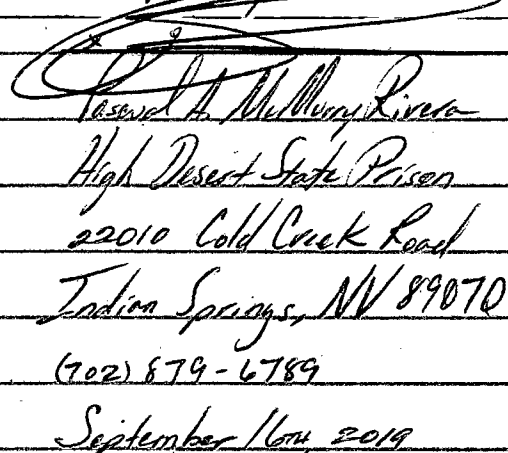 Pascual A. McMurry Rivera
High Desert State Prison
22010 Cold Creek Road
Indian Springs, NV 89070
(702) 879-6789
September 16TH, 2019